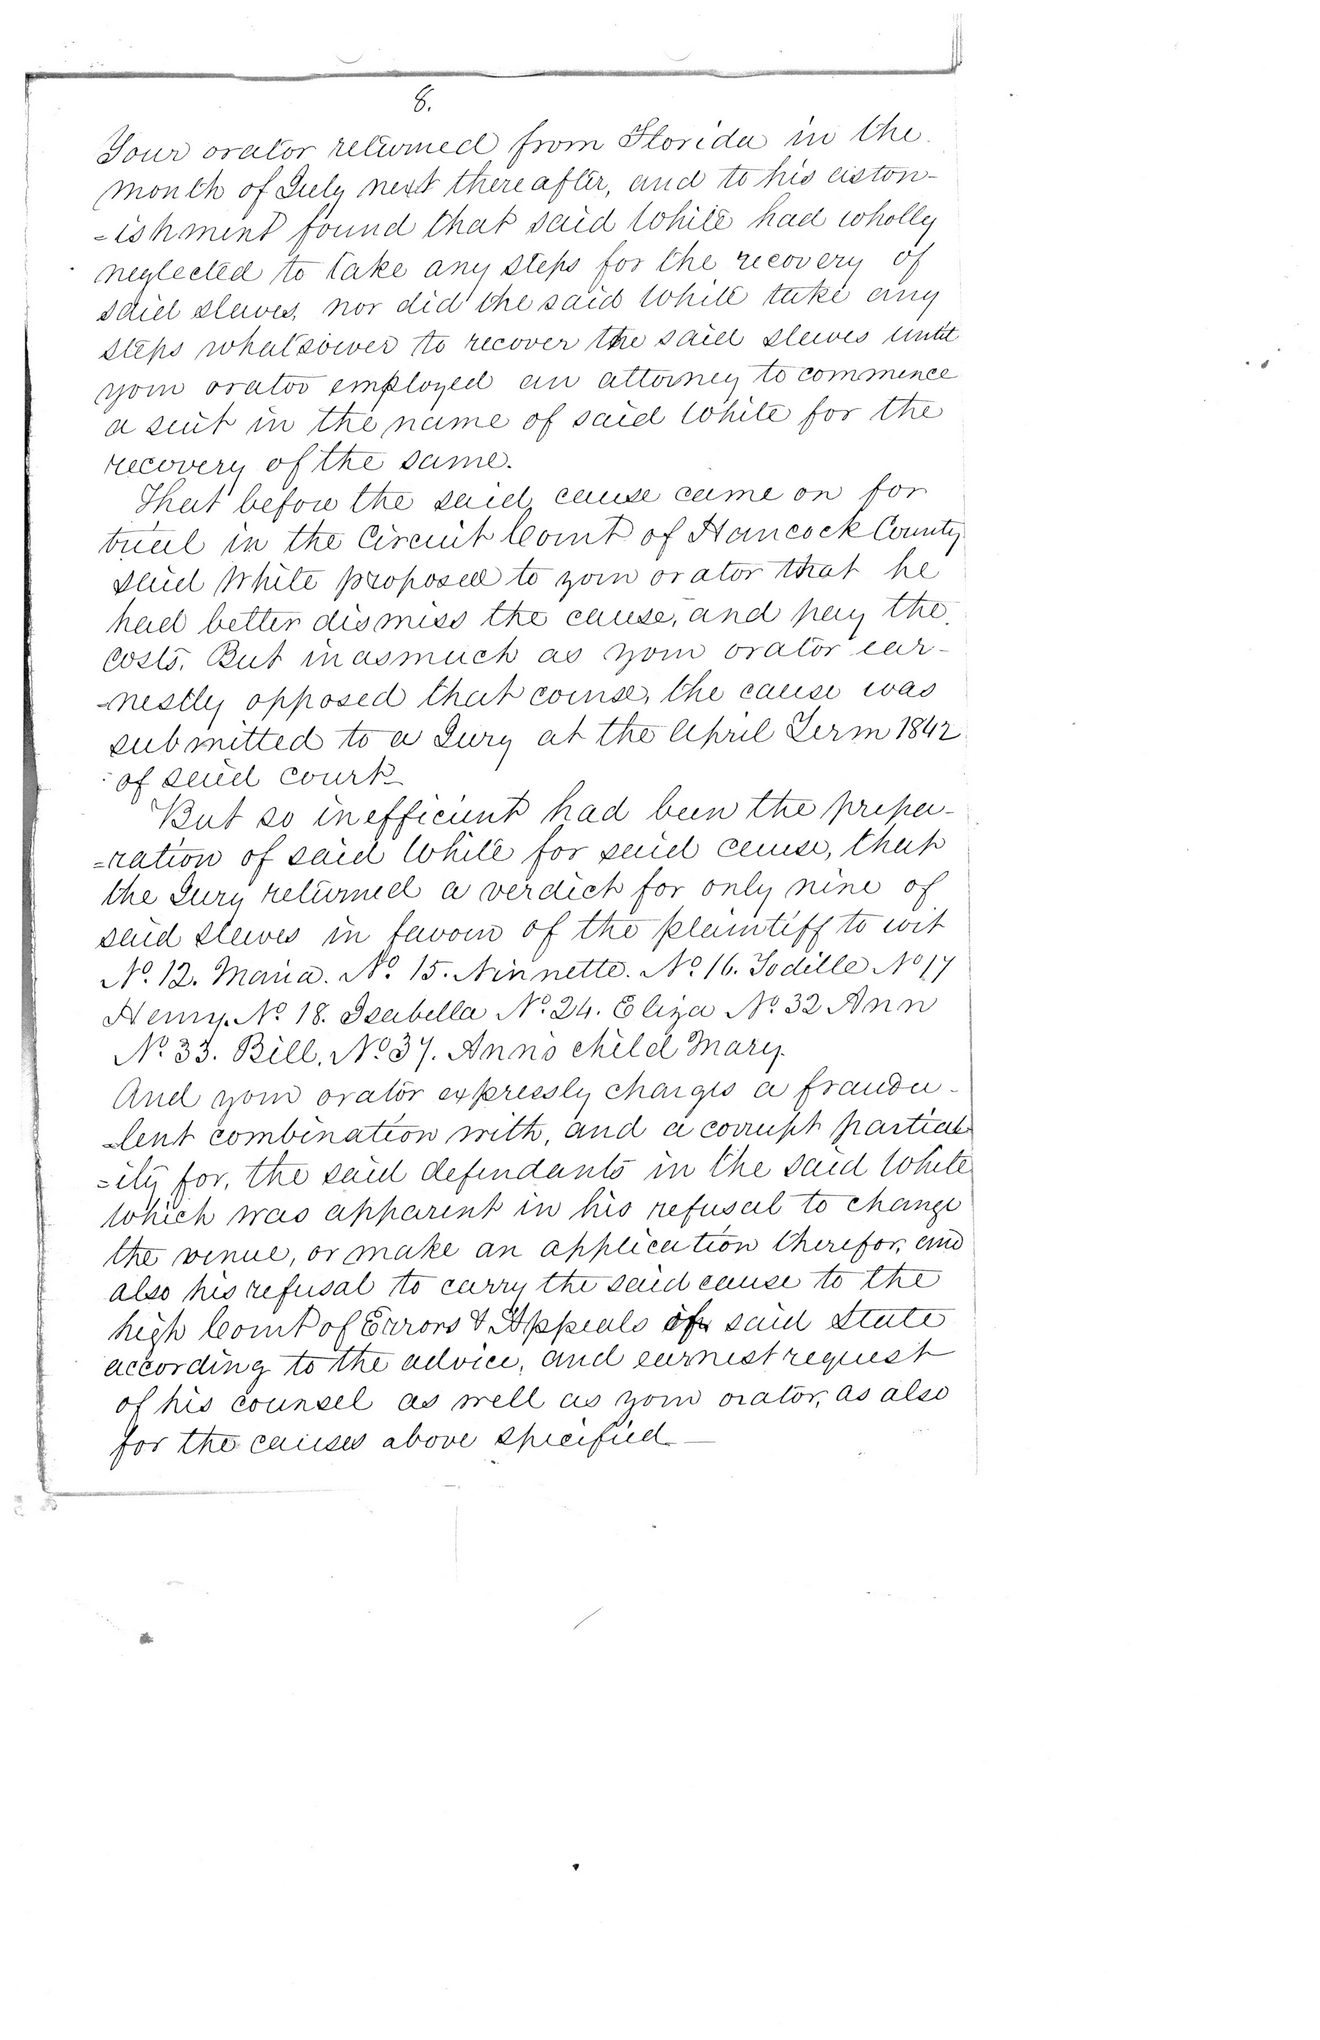 8.
Your orator returned from Florida in the
month of July next thereafter, and to his aston-
=ishment found that said White had wholly
neglected to take any steps for the recovery of
said slaves, nor did the said White take any
steps whatsoever to recover the said slaves until
your orator employed an attorney to commence
a suit in the name of said White for the
recovery of the same.
That before the said cause came on for
trial in the Circuit Court of Hancock County
said White proposed to your orator that he
had better dismiss the cause, and pay the
costs. But inasmuch as your orator ear-
-nestly opposed that course, the cause was
submitted to a Jury at the April Term 1842
of said court-
But so inefficient had been the prepa-
=ration of said White for said cause, that
the Jury returned a verdict for only nine of
said slaves in favour of the plaintiff to wit
No. 12. Maria. No. 15. Ninnette. No. 16. Todille No 17
Henry. No 18. Isabella No. 24. Eliza No. 32 Ann
No. 33. Bill. No. 37. Ann's child Mary.
And your orator expressly charges a fraudu-
-lent combination with, and a corrupt partial
=ity for, the said defendants in the said White
which was apparent in his refusal to change
the venue, or make an application therefor, and
also his refusal to carry the said cause to the
high Court of Errors & Appeals of said State
according to the advice, and earnest request
of his counsel as well as your orator, as also
for the causes above specified—